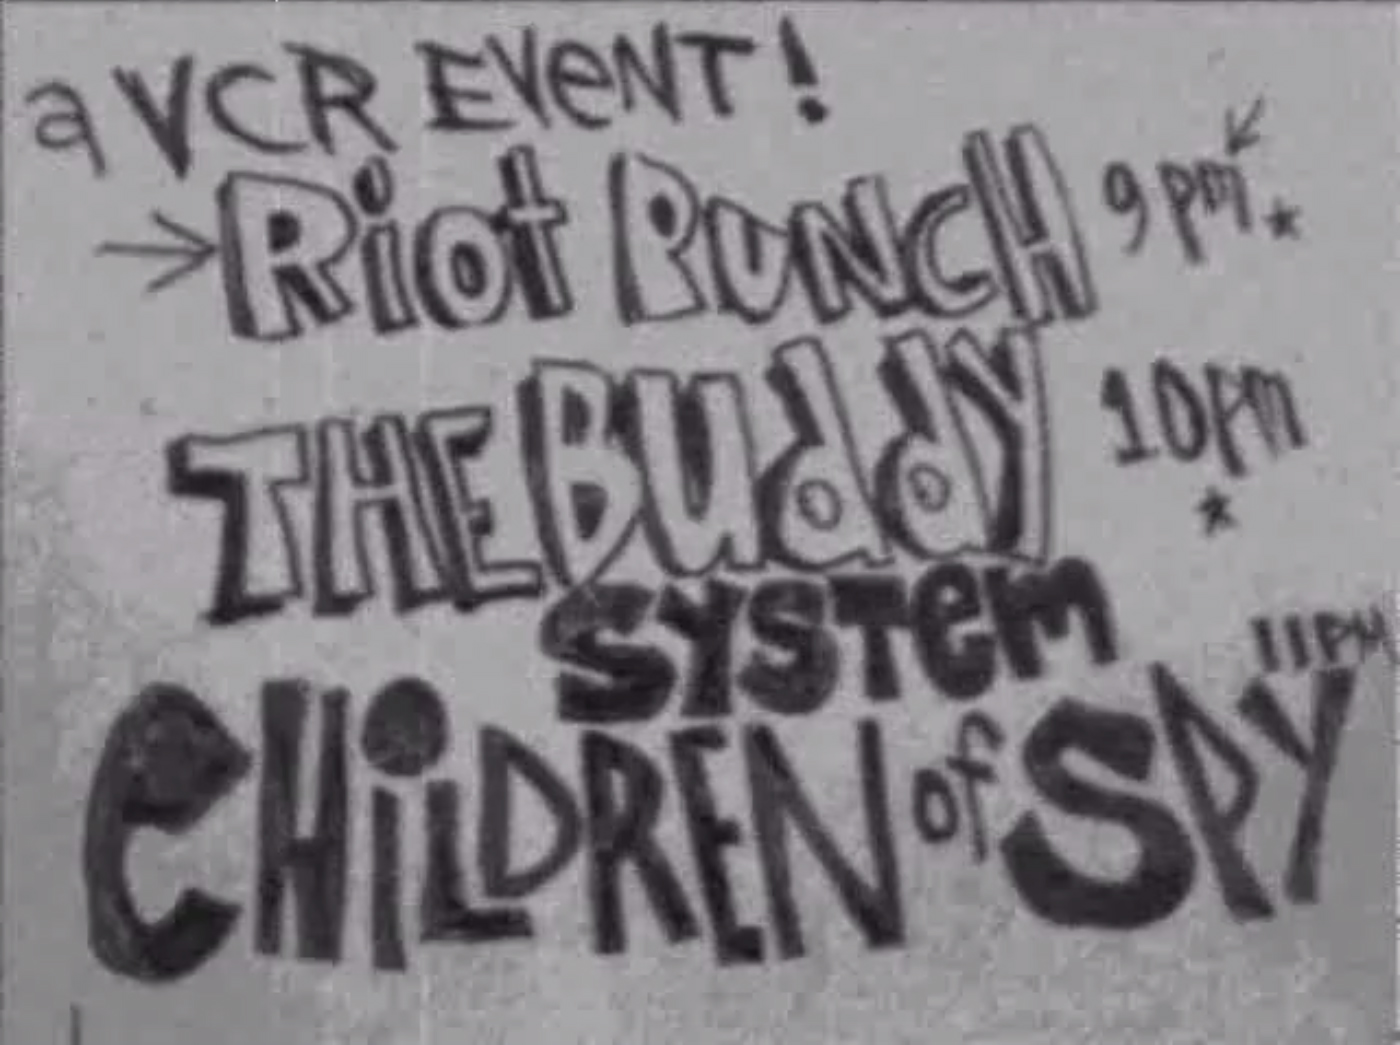 a VCR EVeNT!
Riot PUNCH 9pm
THE BUddY 10pm
SYSTeM
11PM
CHiLDREN of SPY